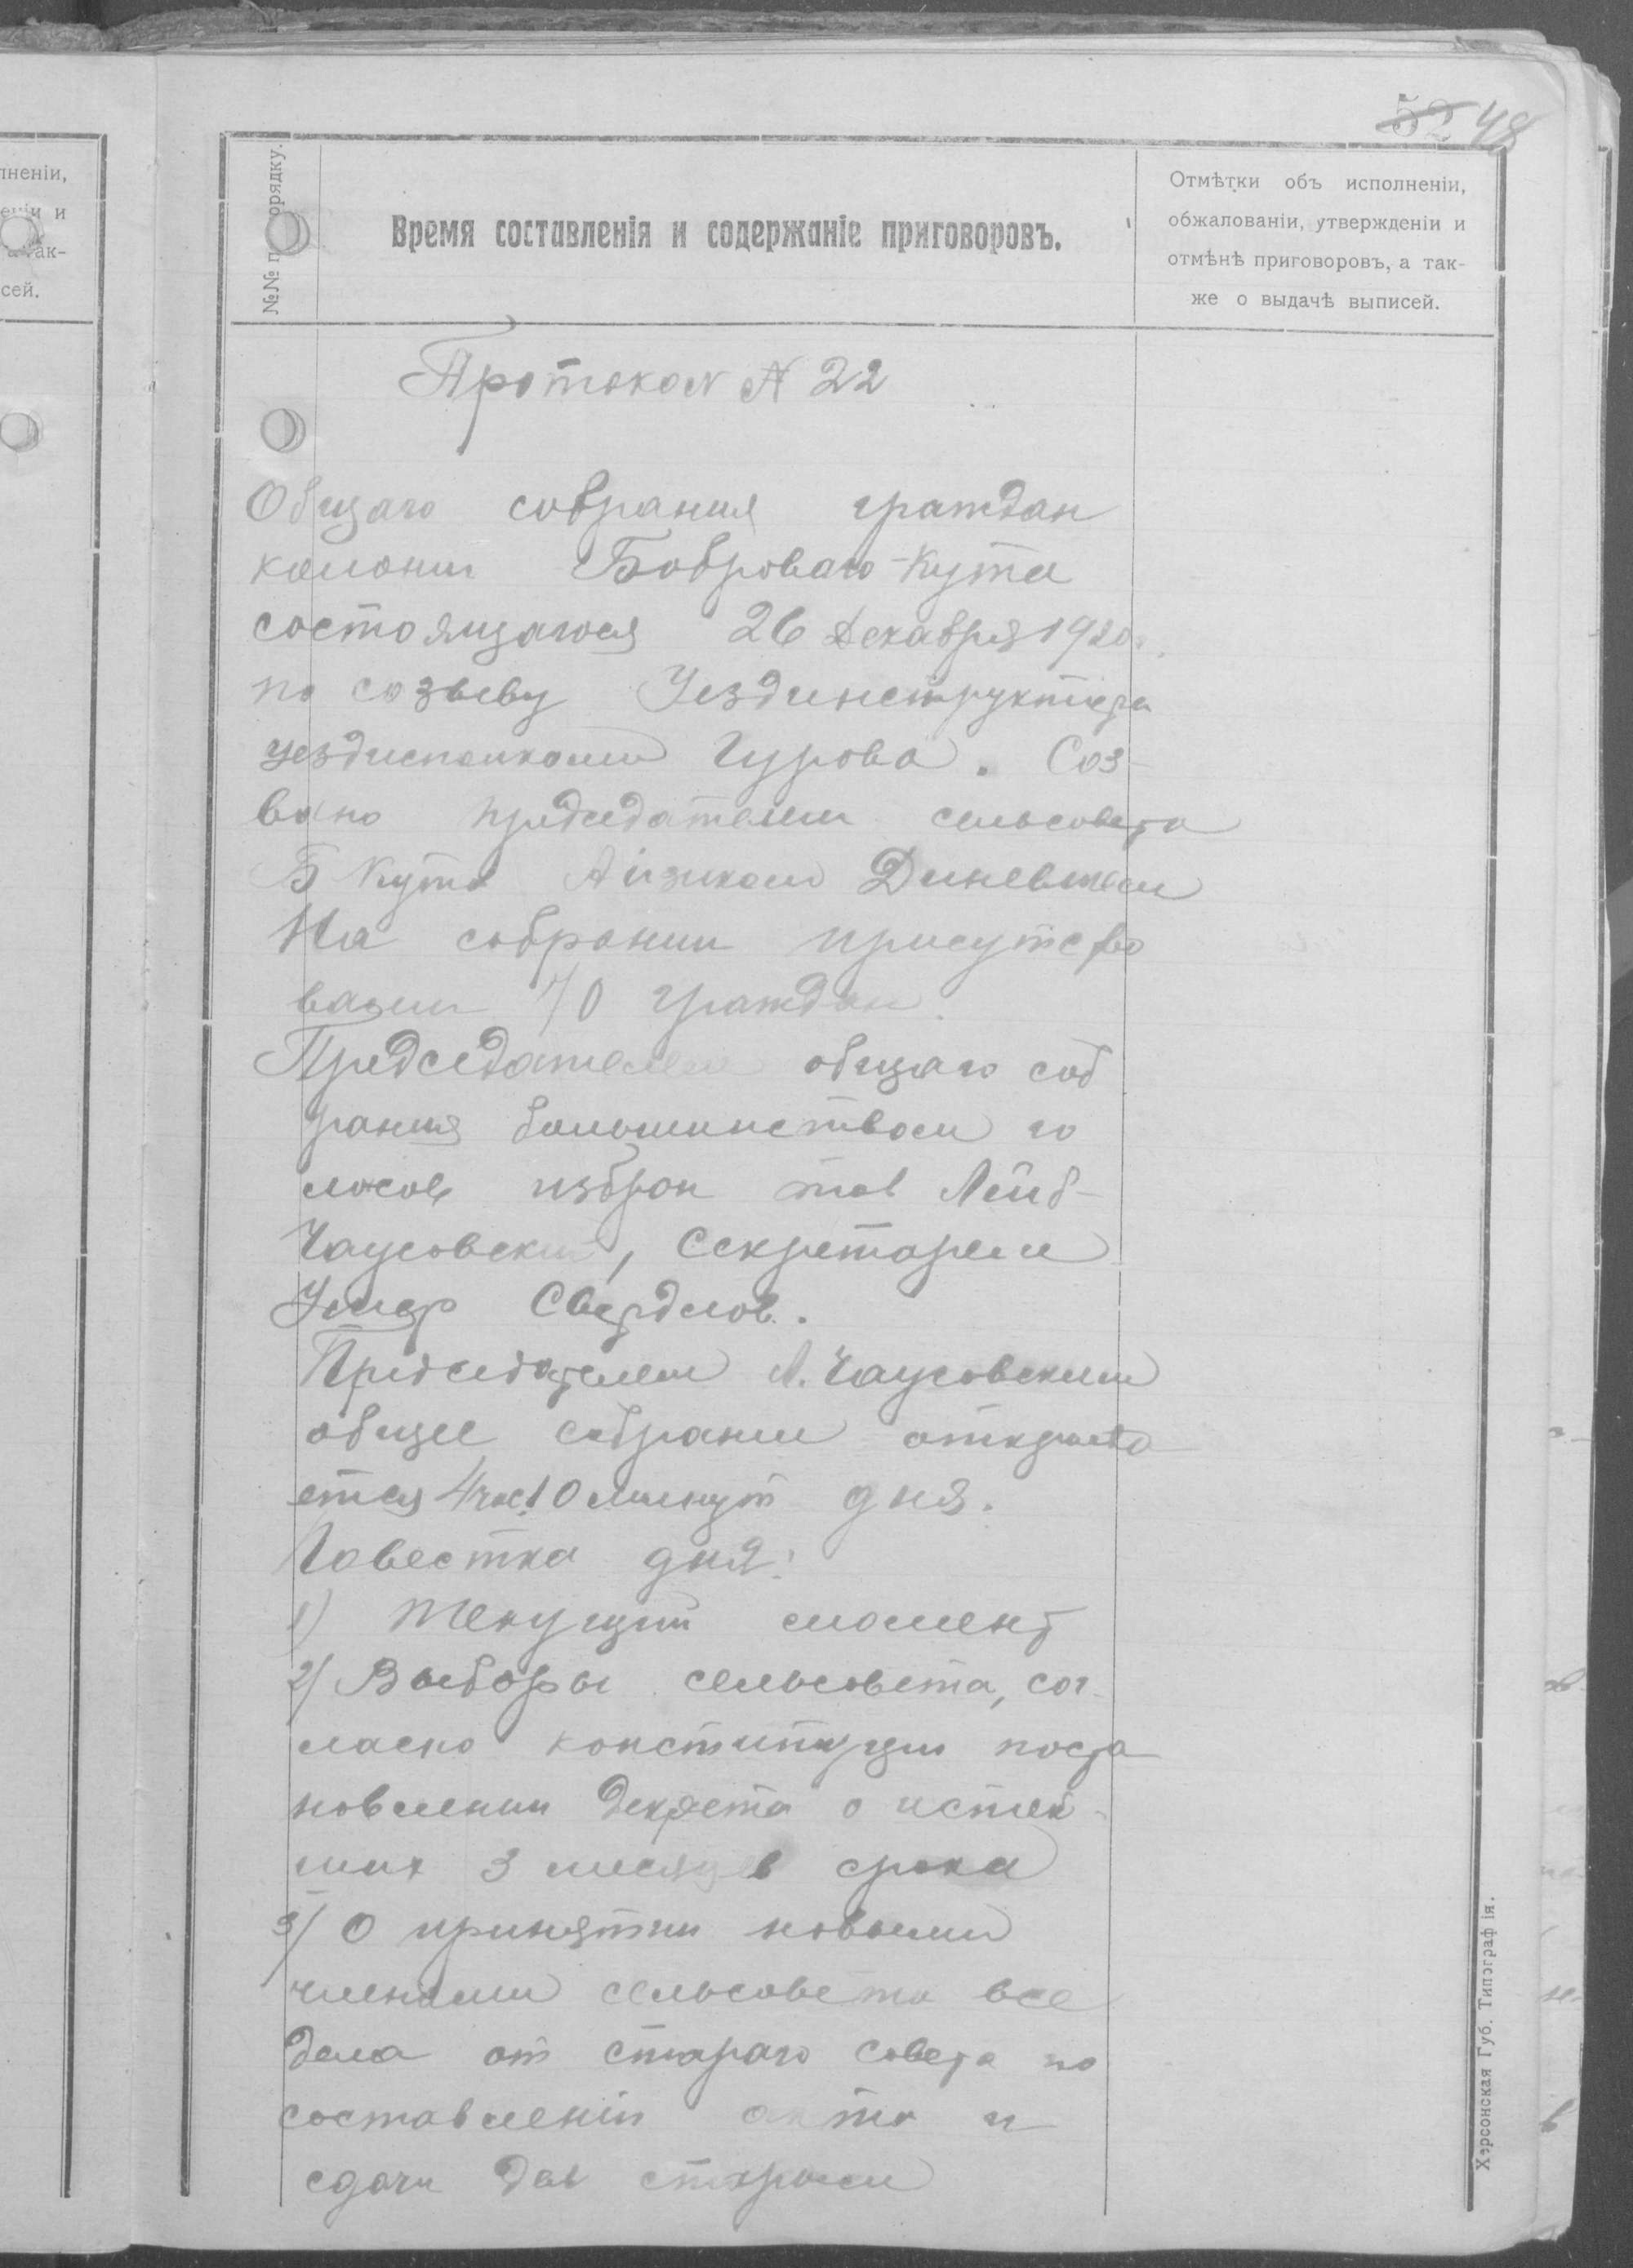 52 48
№№ п орядку.
Время составленія и содержаніе приговоровъ.
Отмѣтки объ исполненіи,
обжалованіи, утвержденіи и
отмѣнѣ приговоровъ, а так-
же о выдачѣ выписей.
лненіи,
еніи и
а так-
сей.
Протокол № 22
Общаго собрания граждан
колонии Боброваго-Кута
состоящагося 26 Декабря 1920 г.
по созыву Уездинструктора
уездисполкома Гурова. Соз-
вано председателем сельсовета
Б Кута Айзиком Диневичем
На собрании присутство
вали 70 граждан.
Председателем общаго соб
рания большинством го
лосов избран тов Лейб-
Чаусовский, Секретарем
Умер Свердлов.
Председателем Л. Чаусовским
общее собрание открыва
ется 4 час. 10 минут дня.
Повестка дня:
1) Текущий момент
2) Выборы сельсовета, сог-
ласно конституции поста
новлении декрета о истек-
ших 3 месяцев срока
3) О принятии новыми
членами сельсовета все
дела от стараго совета по
составленіи акта и
сдачи дел старым
Херсонская Губ. Типографія.